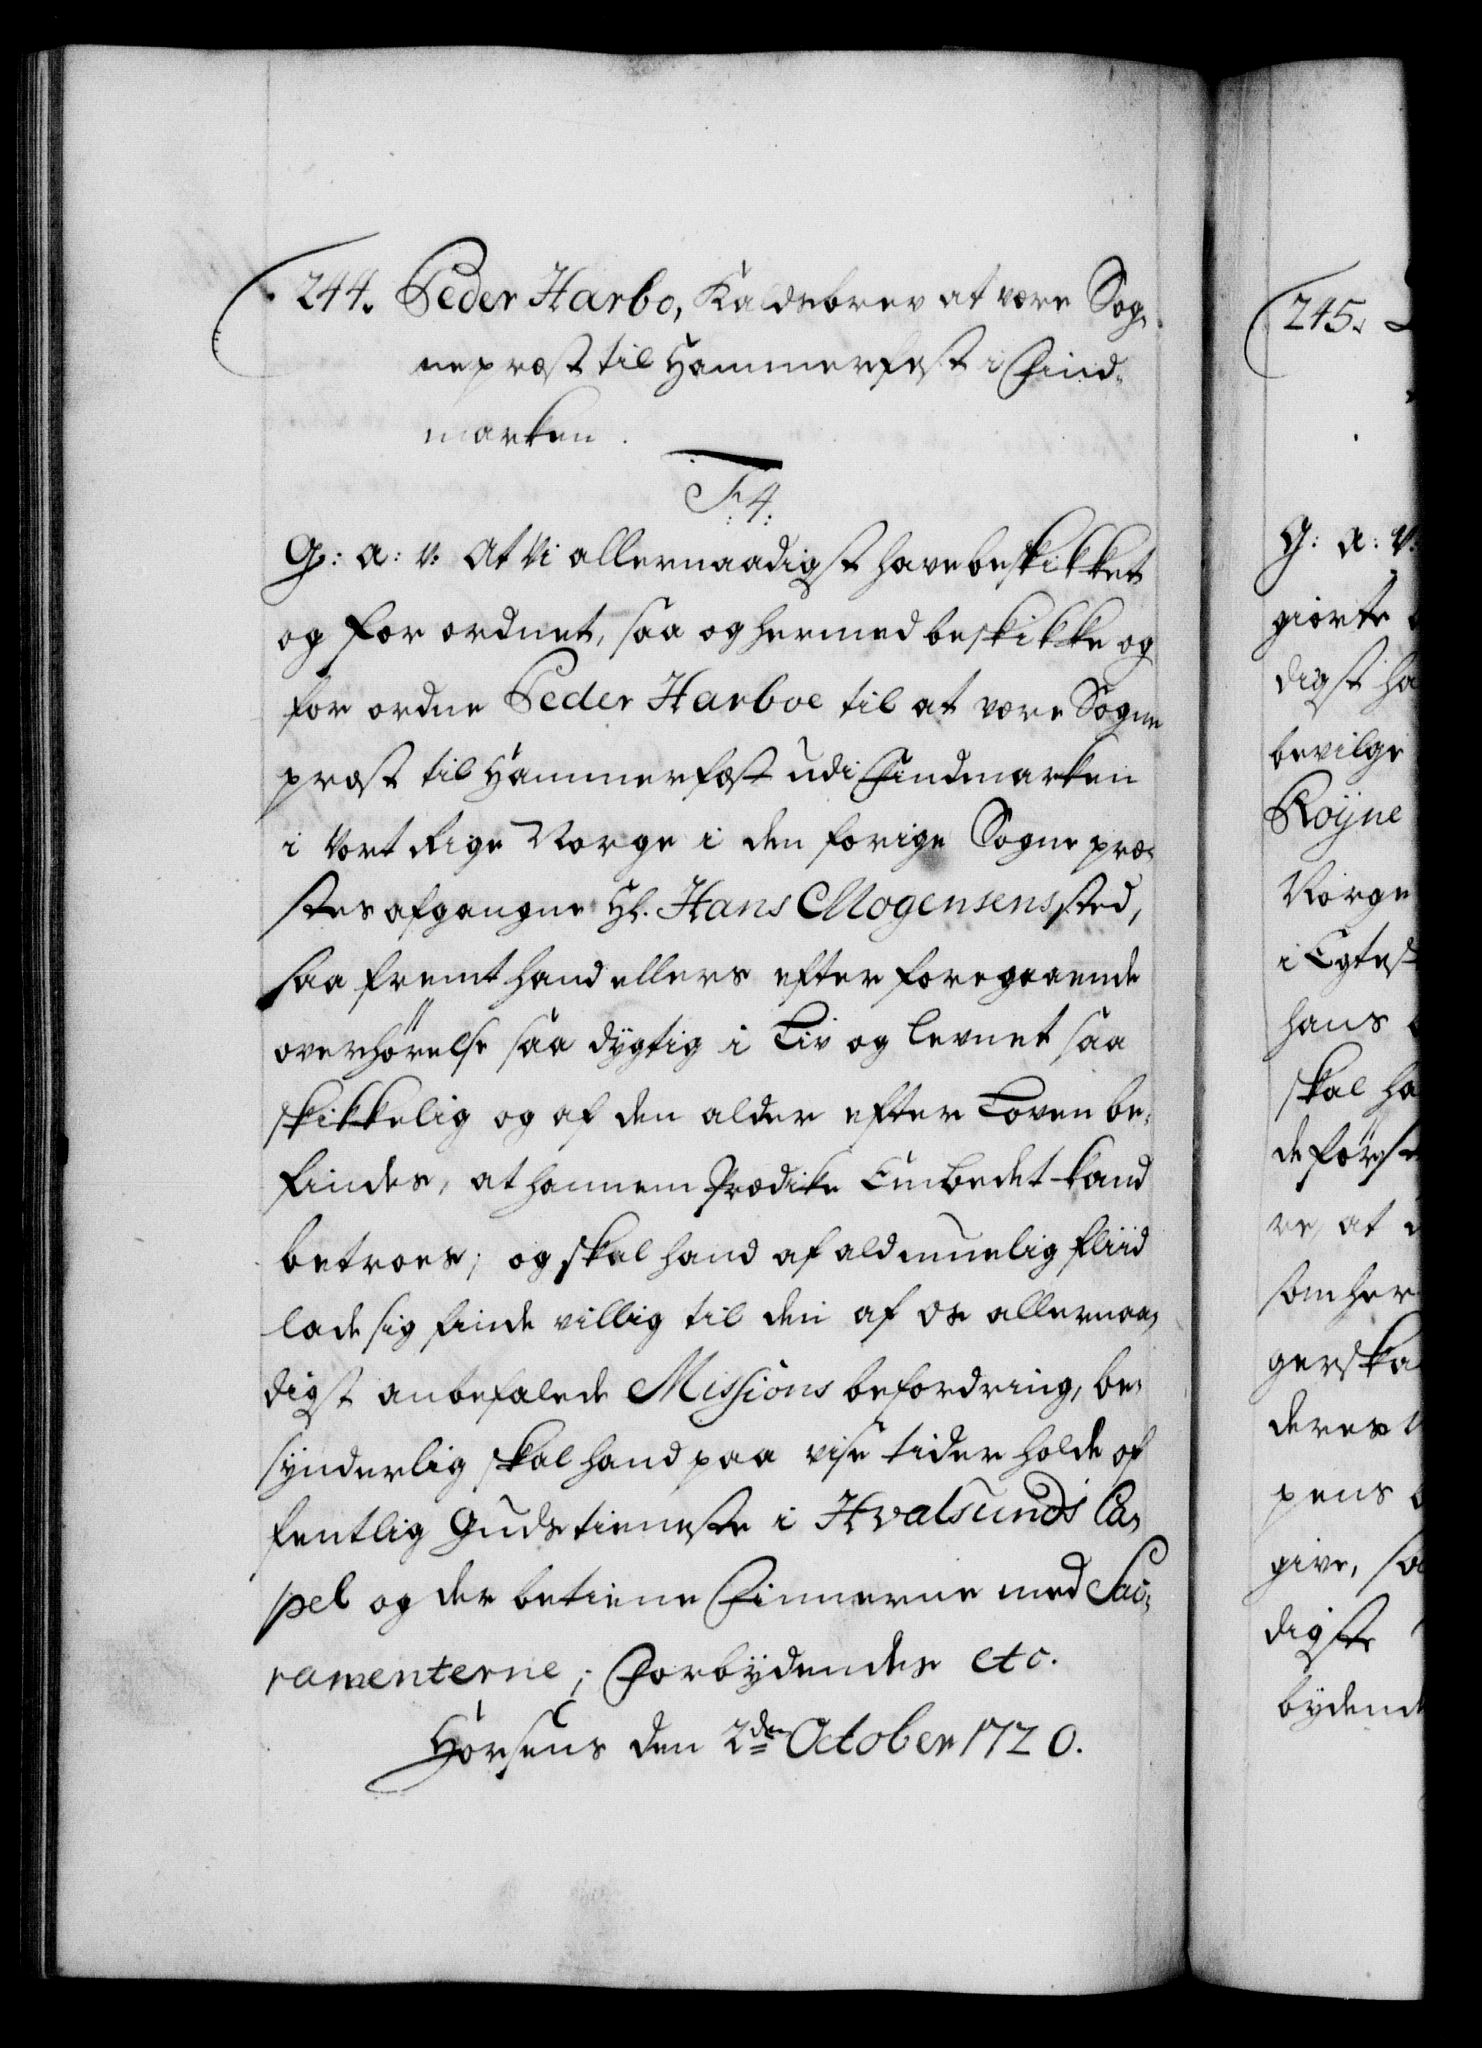 244. Peder Harbo, Kaldsbrev at være Sog-
nepræst til Hammerfest i Find-
marken.
F. 4.
G: a: v: At Vi allernaadigst have beskikket
og for ordnet, saa og hermed beskikke og
for ordne Peder Harboe til at være Sogne
præst til Hammerfest udi Findmarken
i Vort Rige Norge i den forige Sogne præ-
stes afgangne Hr. Hans Mogensens sted,
saa fremt hand ellers efter foregaaende
overhörelse saa dygtig i Liv og levnet saa
skikkelig og af den alder efter Loven be-
findes, at hannem Prædike Embedet kand
betroes; og skal hand af ald muelig fliid
lade sig finde villig til den af os allernaa-
digst anbefalede Missions befordring, be-
synderlig skal hand paa visse tider holde of
fentlig Gudstieneste i Hvalsunds Ca-
pel og der betiene Finnerne med Sac-
ramenterne; Forbydendes etc.
Horsens den 2den October 1720.
245.
G: a: v:
giorte
digst ha
bevilge
Röyne
Norge
i Egtes
hans
skal ha
de först
re, at
som her
gerska
deres
pens
give, sa
digste
bydend